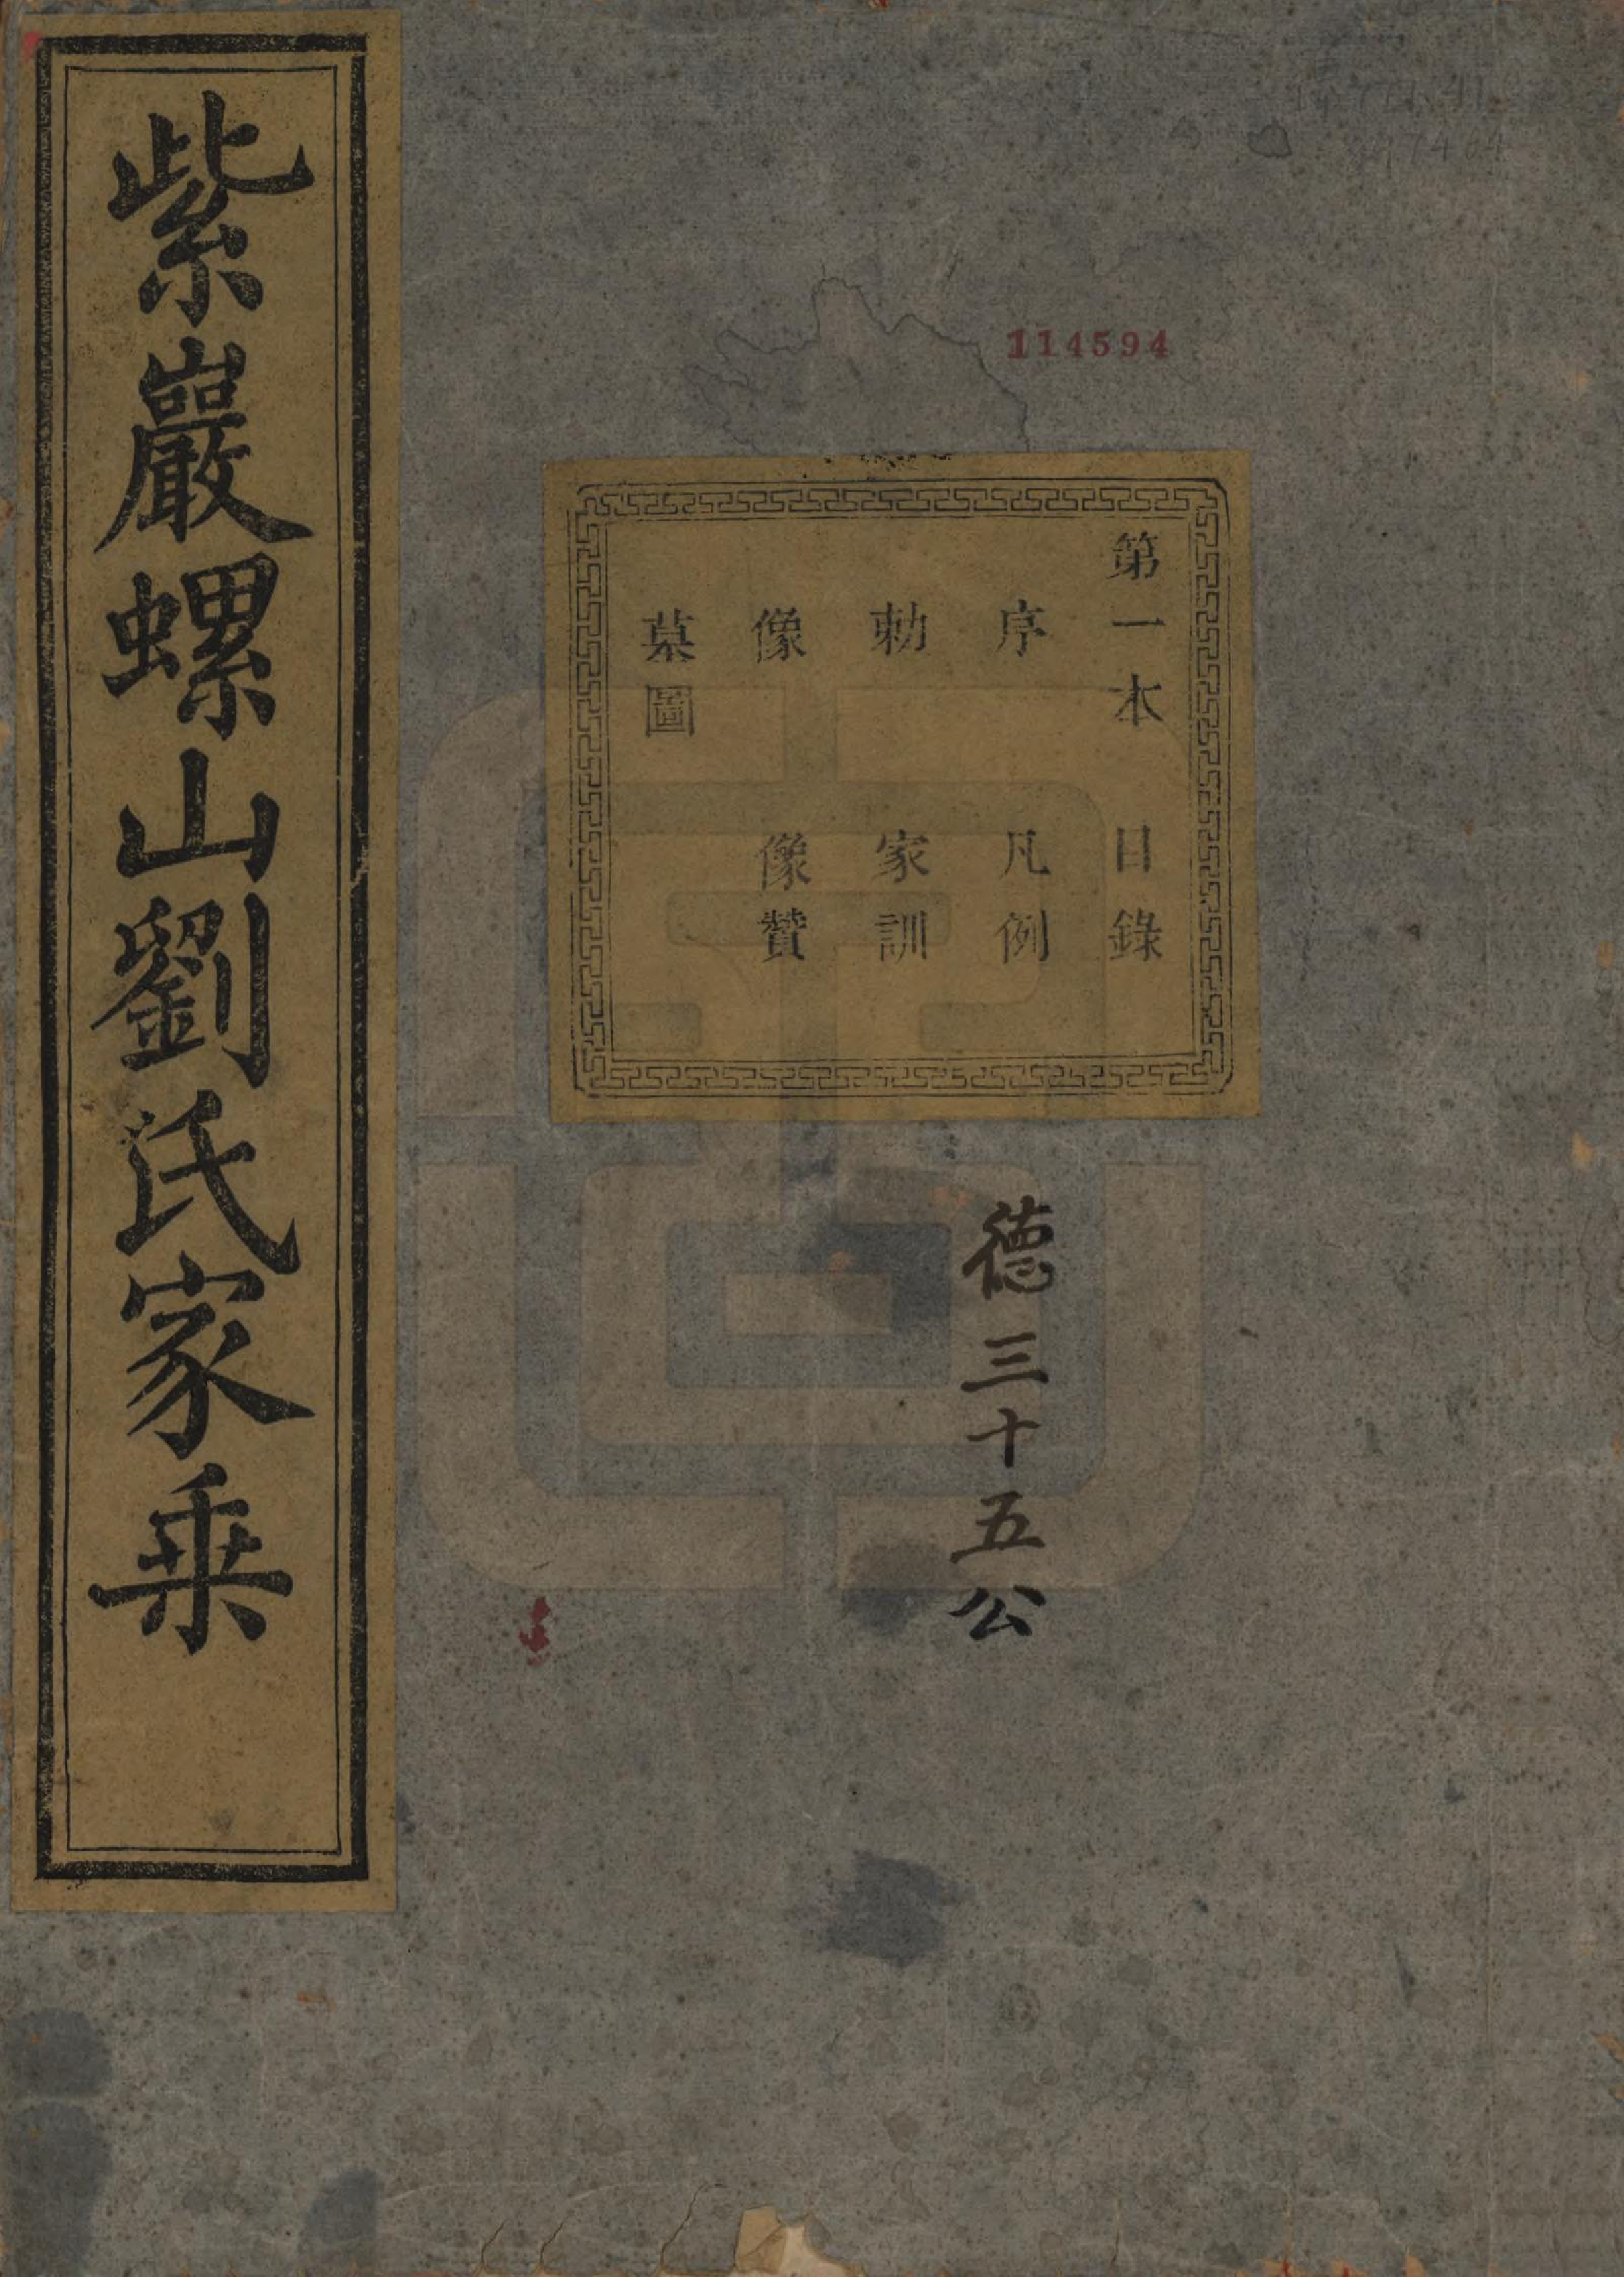 紫巖螺山劉氏家乗
114594
第一本 目錄
序 凡例
勅 家訓
像 像贊
墓圖
德三十五公